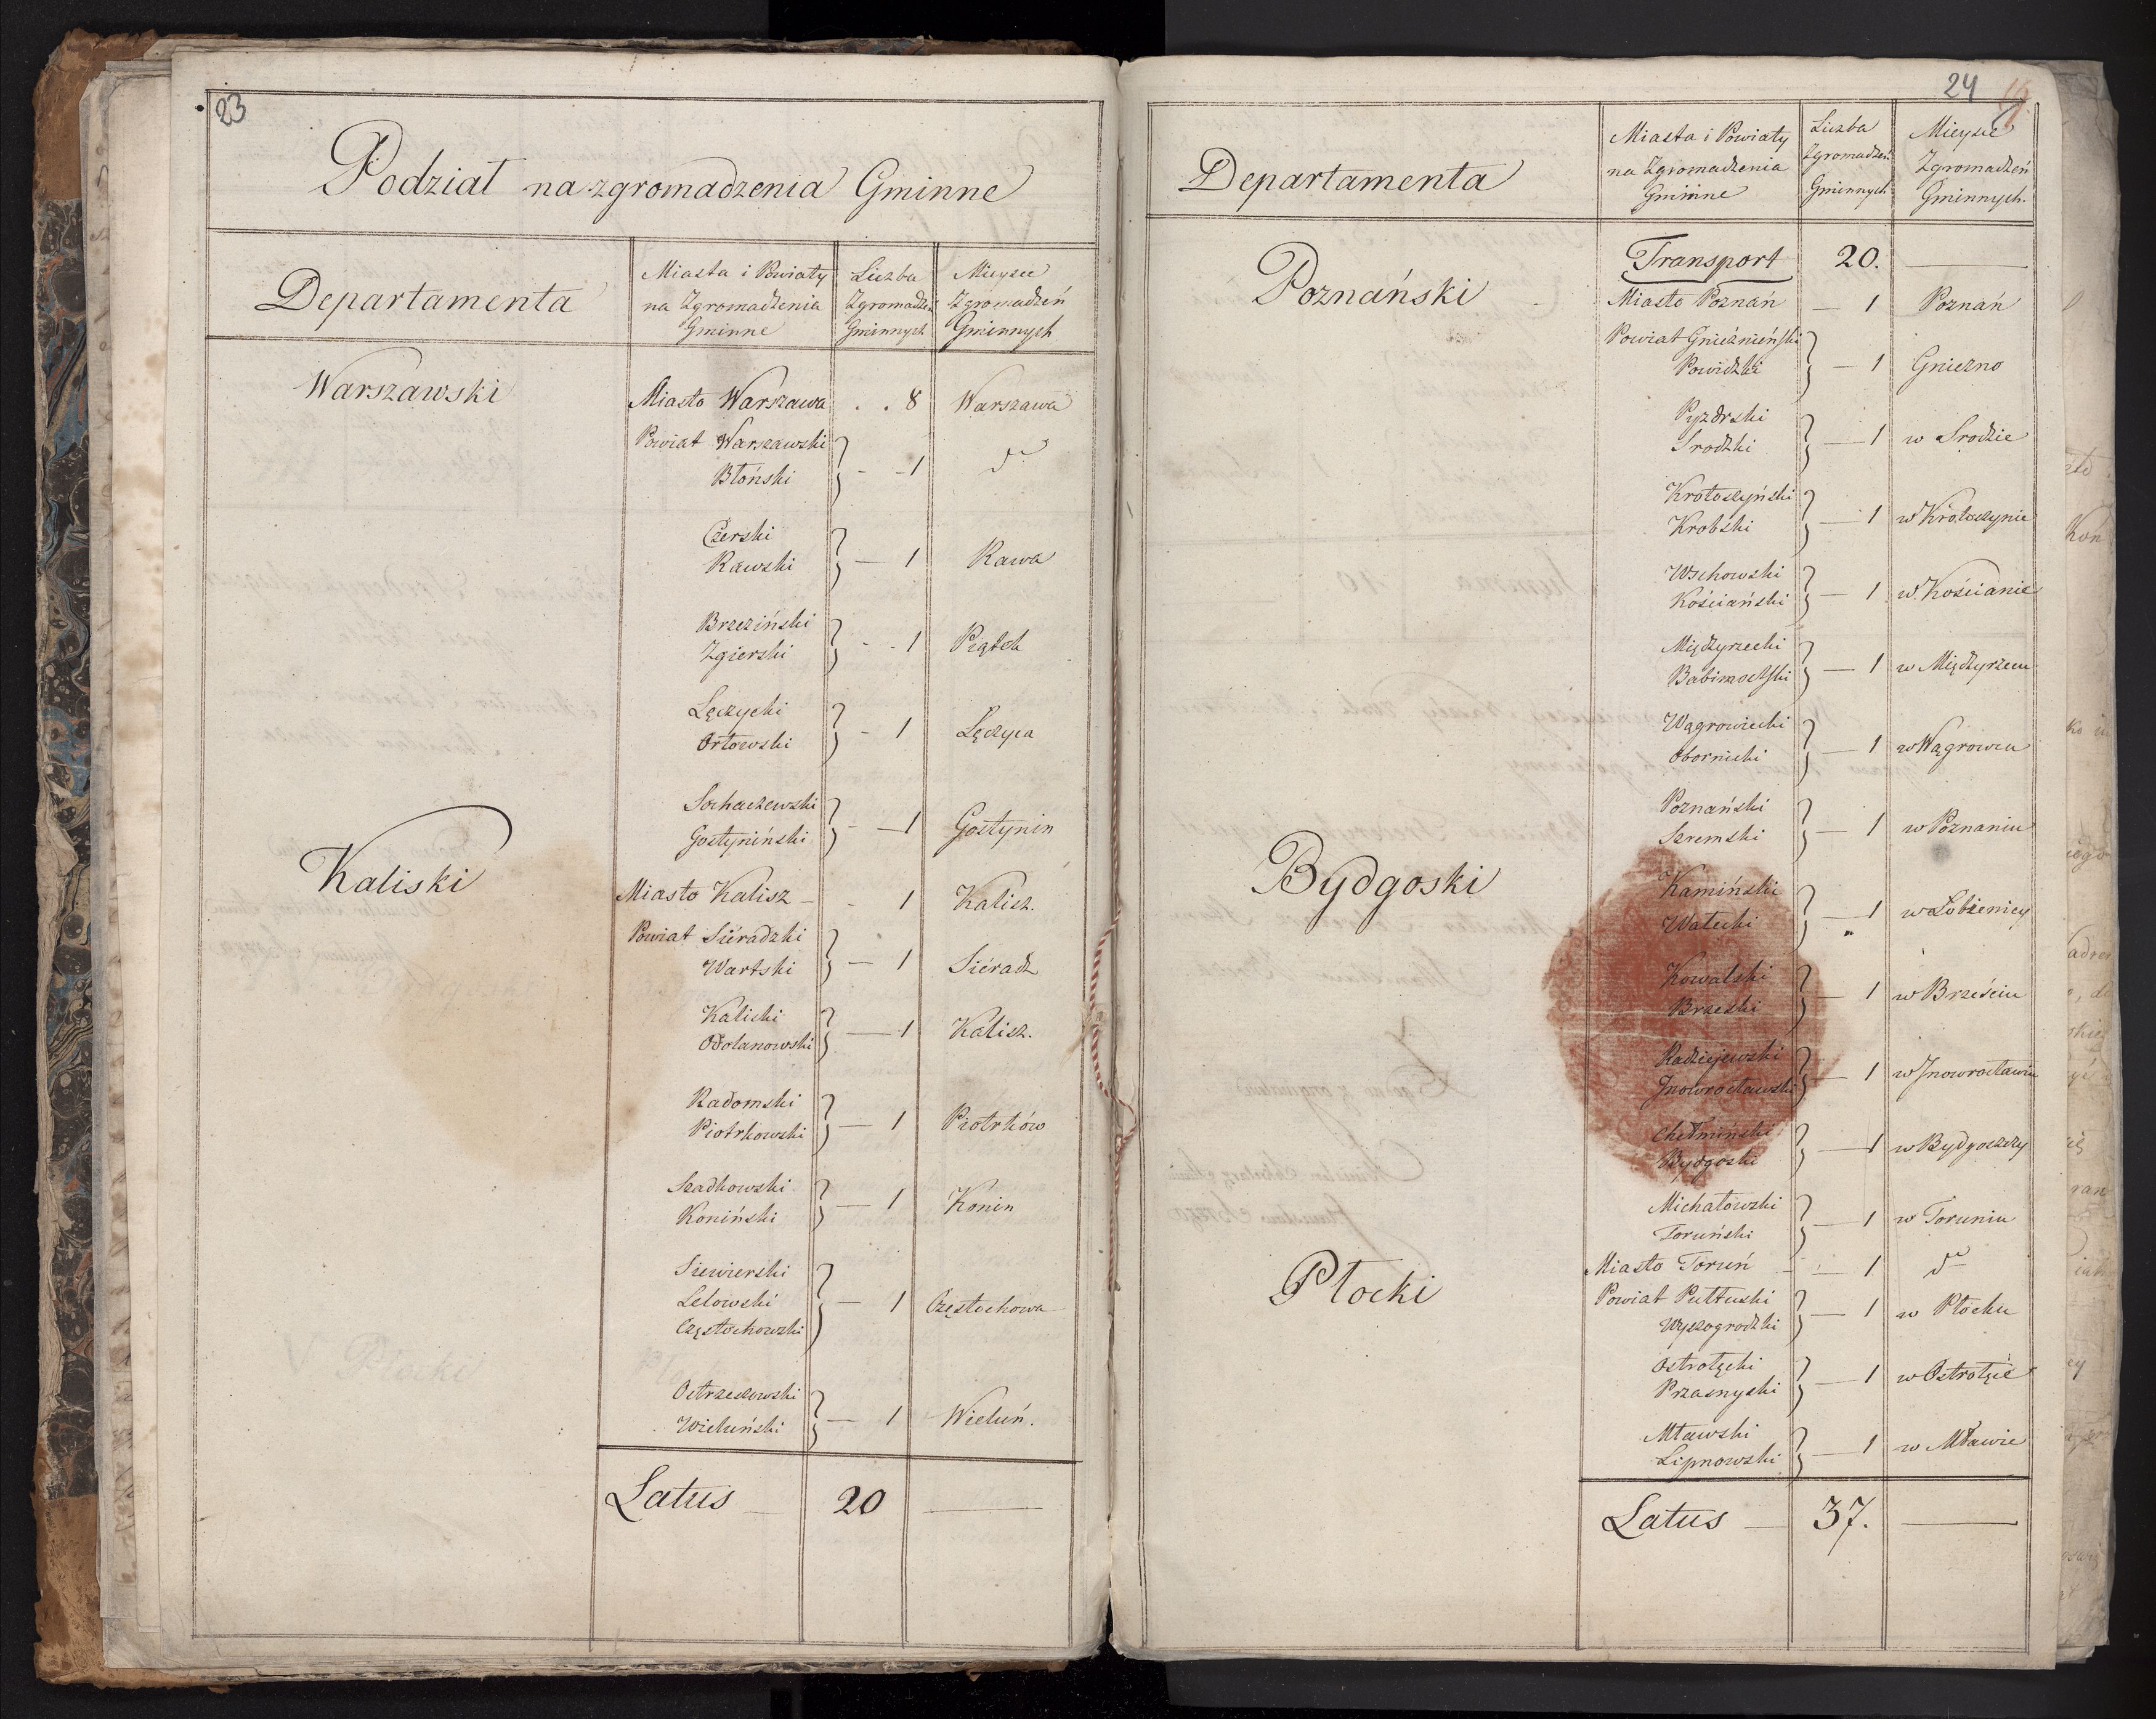 23
Podział na zgromadzenia Gminne
Departamenta
Miasta i Powiaty
na Zgromadzenia
Gminne
Liczba
Zgromadzeń
Gminnych
Mieysce
Zgromadzeń
Gminnych
Warszawski
Miasto Warszawa . . 8 Warszawa
Powiat Warszawski
Błoński - - 1 do
Czerski
Rawski — 1 Rawa
Brzeziński
Zgierski - - 1 Piątek
Łęczycki
Orłowski - 1 Łęczyca
Sochaczewski
Gostyniński - — 1 Gostynin
Kaliski
Miasto Kalisz - - 1 Kalisz.
Powiat Siéradzki
Wartski — 1 Siéradz
Kaliski
Odolanowski — 1 Kalisz.
Radomski
Piotrkowski — 1 Piotrków
Szadkowski
Koniński — 1 Konin
Siewierski
Lelowski — 1 Częstochowa
Częstochowski
Ostrzeszowski
Wieluński — 1 Wieluń.
Latus — 20 —
24
Departamenta
Miasta i Powiaty
na Zgromadzenia
Gminne
Liczba
Zgromadzeń
Gminnych
Mieysce
Zgromadzeń
Gminnych.
Transport 20. —
Poznański
Miasto Poznań — 1 Poznań
Powiat Gnieźnieński
Powidzki — 1 Gniezno
Pyzdrski
Srodzki — 1 w Srodzie
Krotoszyński
Krobski — 1 w Krotoszynie
Wschowski
Kościański — 1 w Kościanie
Międzyrzecki
Babimostski — 1 w Międzyrzecu
Wągrowiecki
Obornicki — 1 w Wągrowcu
Poznański
Szremski — 1 w Poznaniu
Bydgoski
Kamiński
Wałecki — 1 w Łobżenicy
Kowalski
Brzeski — 1 w Brześciu
Radziejewski
Jnowrocławski — 1 w Jnowrocławiu
Chełmiński
Bydgoski — 1 w Bydgoszczy
Michałowski
Toruński — 1 w Toruniu
Miasto Toruń — 1 do
Płocki
Powiat Pułtuski
Wyszogrodzki — 1 w Płocku
Ostrołęcki
Przasnyski — 1 w Ostrołęce
Mławski
Lipnowski — 1 w Mławie
Latus — 37. —